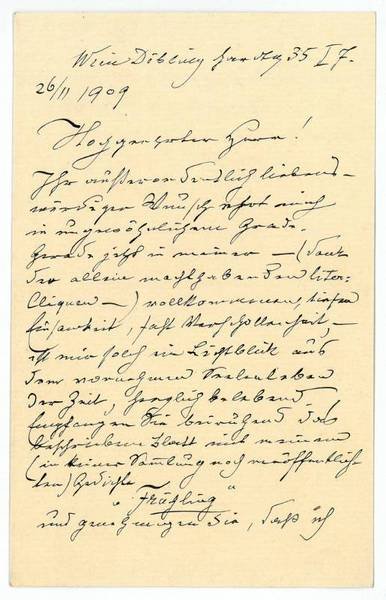 Wien Döbling Hardtg 35 I 7.
26/11 1909
Hochgeehrter Herr!
Ihr außerordentlich liebens-
würdiger Wunsch ehrt mich
in ungewöhnlichem Grade.
Gerade jetzt in meiner — (Dank
der allein machthabenden liter-
Cliquen —) vollkommenen, tiefen
Einsamkeit, fast Verschollenheit, —
ist mir solch ein Lichtblick aus
dem vornehmen Seelenleben
der Zeit, herzlich belebend.
Empfangen Sie beiruhend das
beschriebene Blatt mit meinem
(in keiner Samlung noch veröffentlich-
ten) Gedichte
„Frühling“
und genehmigen Sie, daß ich